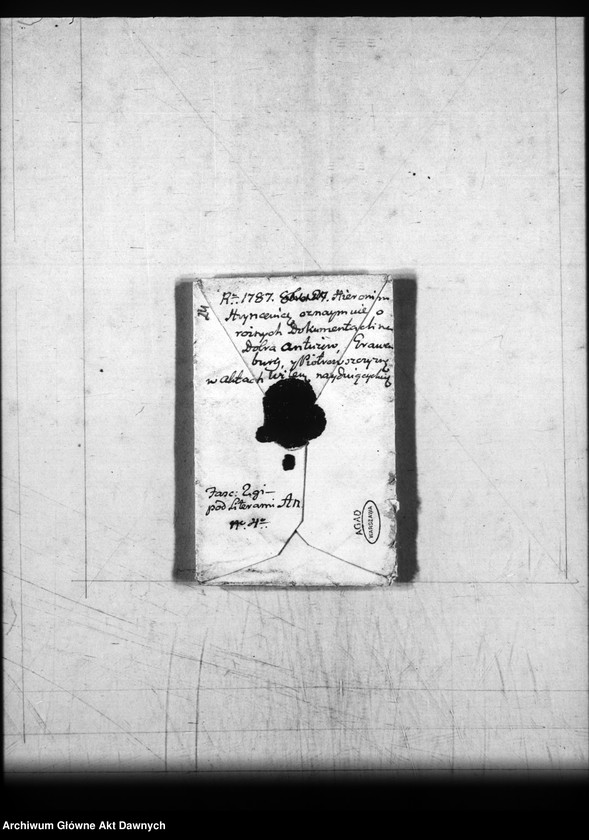 24
R. 1787. Hieronim
Hryncewicz oznaymuie o
rożnych Dokumentach na
Dobra Antuzow, Grawen
burg, y Piotrowszczyzny
w aktach
Fasc: 2gi
pod Literami An
N. 4
AGAD
WARSZAWA
Archiwum Główne Akt Dawnych